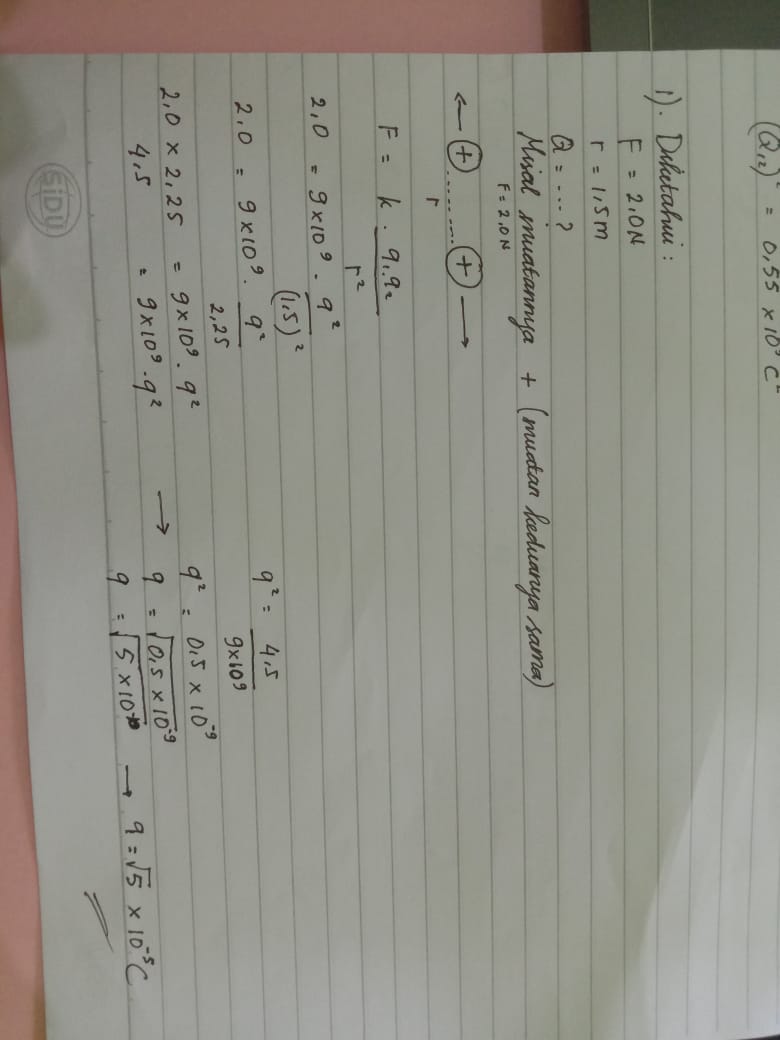 (Q₁,₂)² = 0,55 × 10⁹ C²
1). Diketahui :
F = 2.0N
r = 1,5m
Q = ... ?
Misal muatannya + (muatan keduanya sama)
F = 2.0N
← (+) ........ (+) →
r
F = k . q₁.q₂ / r²
2,0 = 9×10⁹ . q² / (1,5)²
2,0 = 9×10⁹ . q² / 2,25
2,0 × 2,25 = 9×10⁹ . q²
4,5 = 9×10⁹ . q² →
q² = 4,5 / 9×10⁹
q² = 0,5 × 10⁻⁹
q = √0,5 × 10⁻⁹
q = √5 × 10⁻¹⁰ → q = √5 × 10⁻⁵ C
SiDU